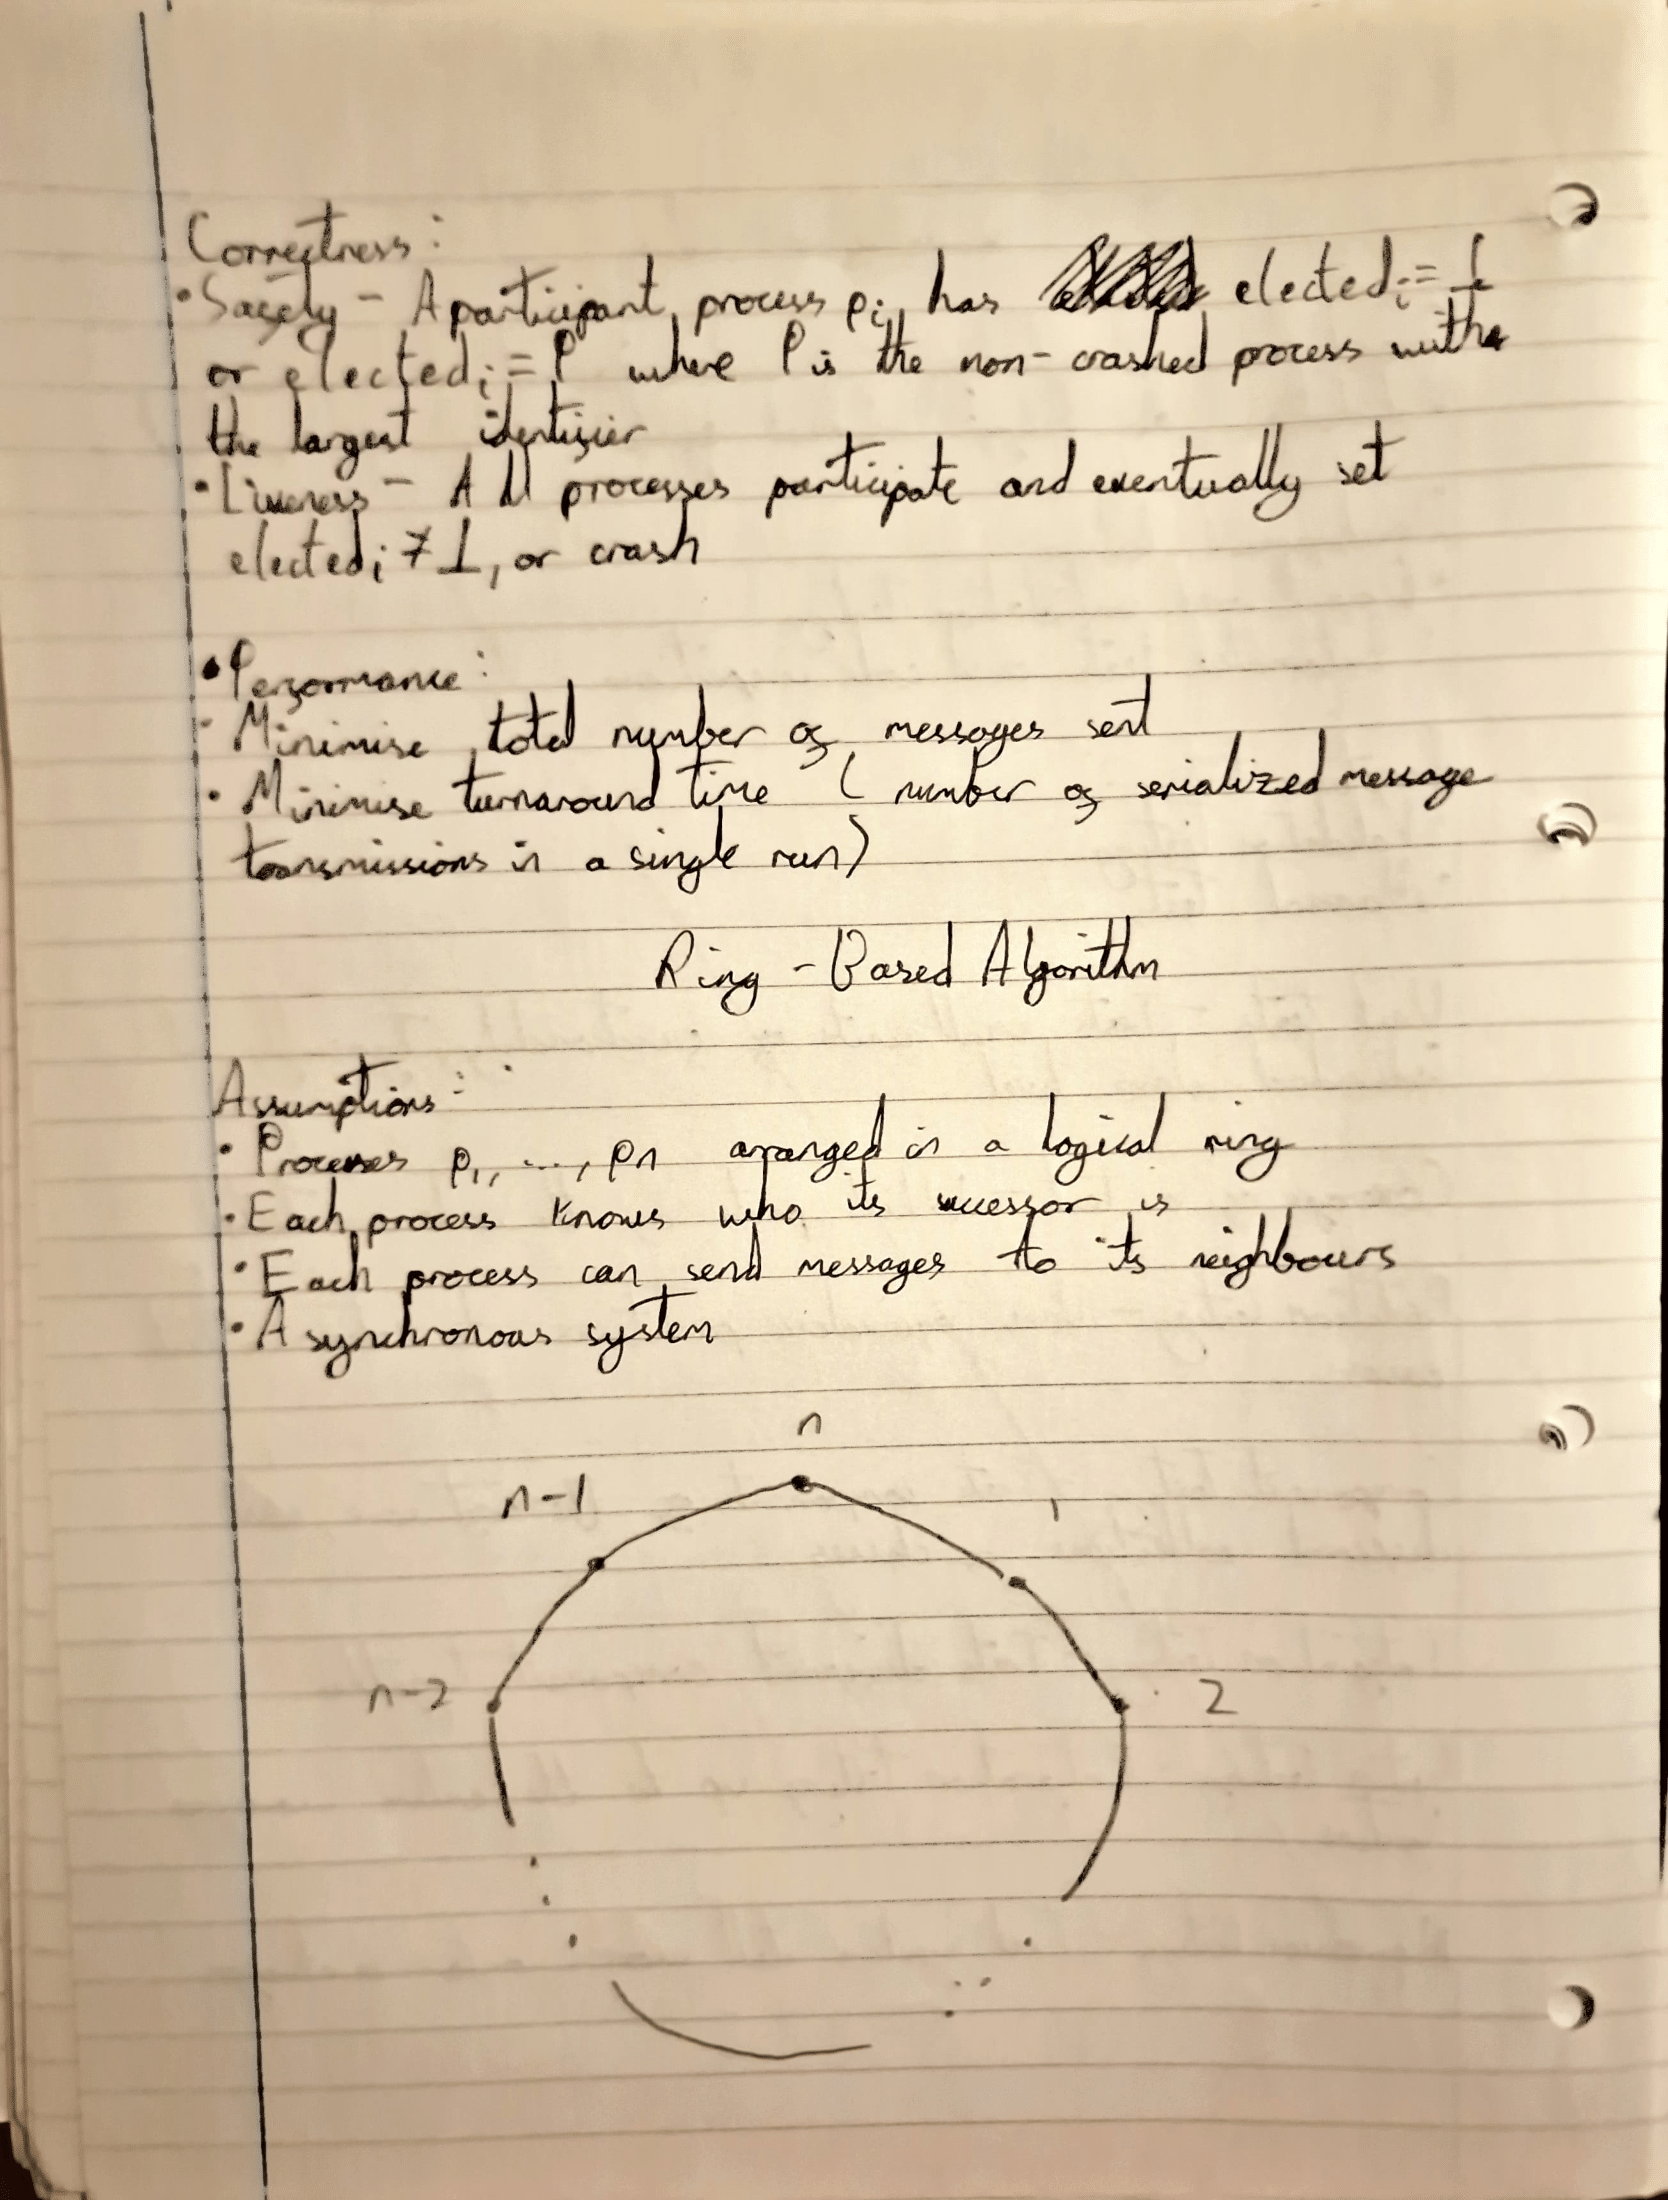 Correctness:
• Safety - A participant process pᵢ has electedᵢ = ⊥
or electedᵢ = P where P is the non-crashed process with
the largest identifier
• Liveness - All processes participate and eventually set
electedᵢ ≠ ⊥, or crash
• Performance:
• Minimise total number of messages sent
• Minimise turnaround time (number of serialized message
transmissions in a single run)
Ring-Based Algorithm
Assumptions:
• Processes p₁, ..., pn arranged in a logical ring
• Each process knows who its successor is
• Each process can send messages to its neighbours
• Asynchronous system
n
n-1
1
n-2
2